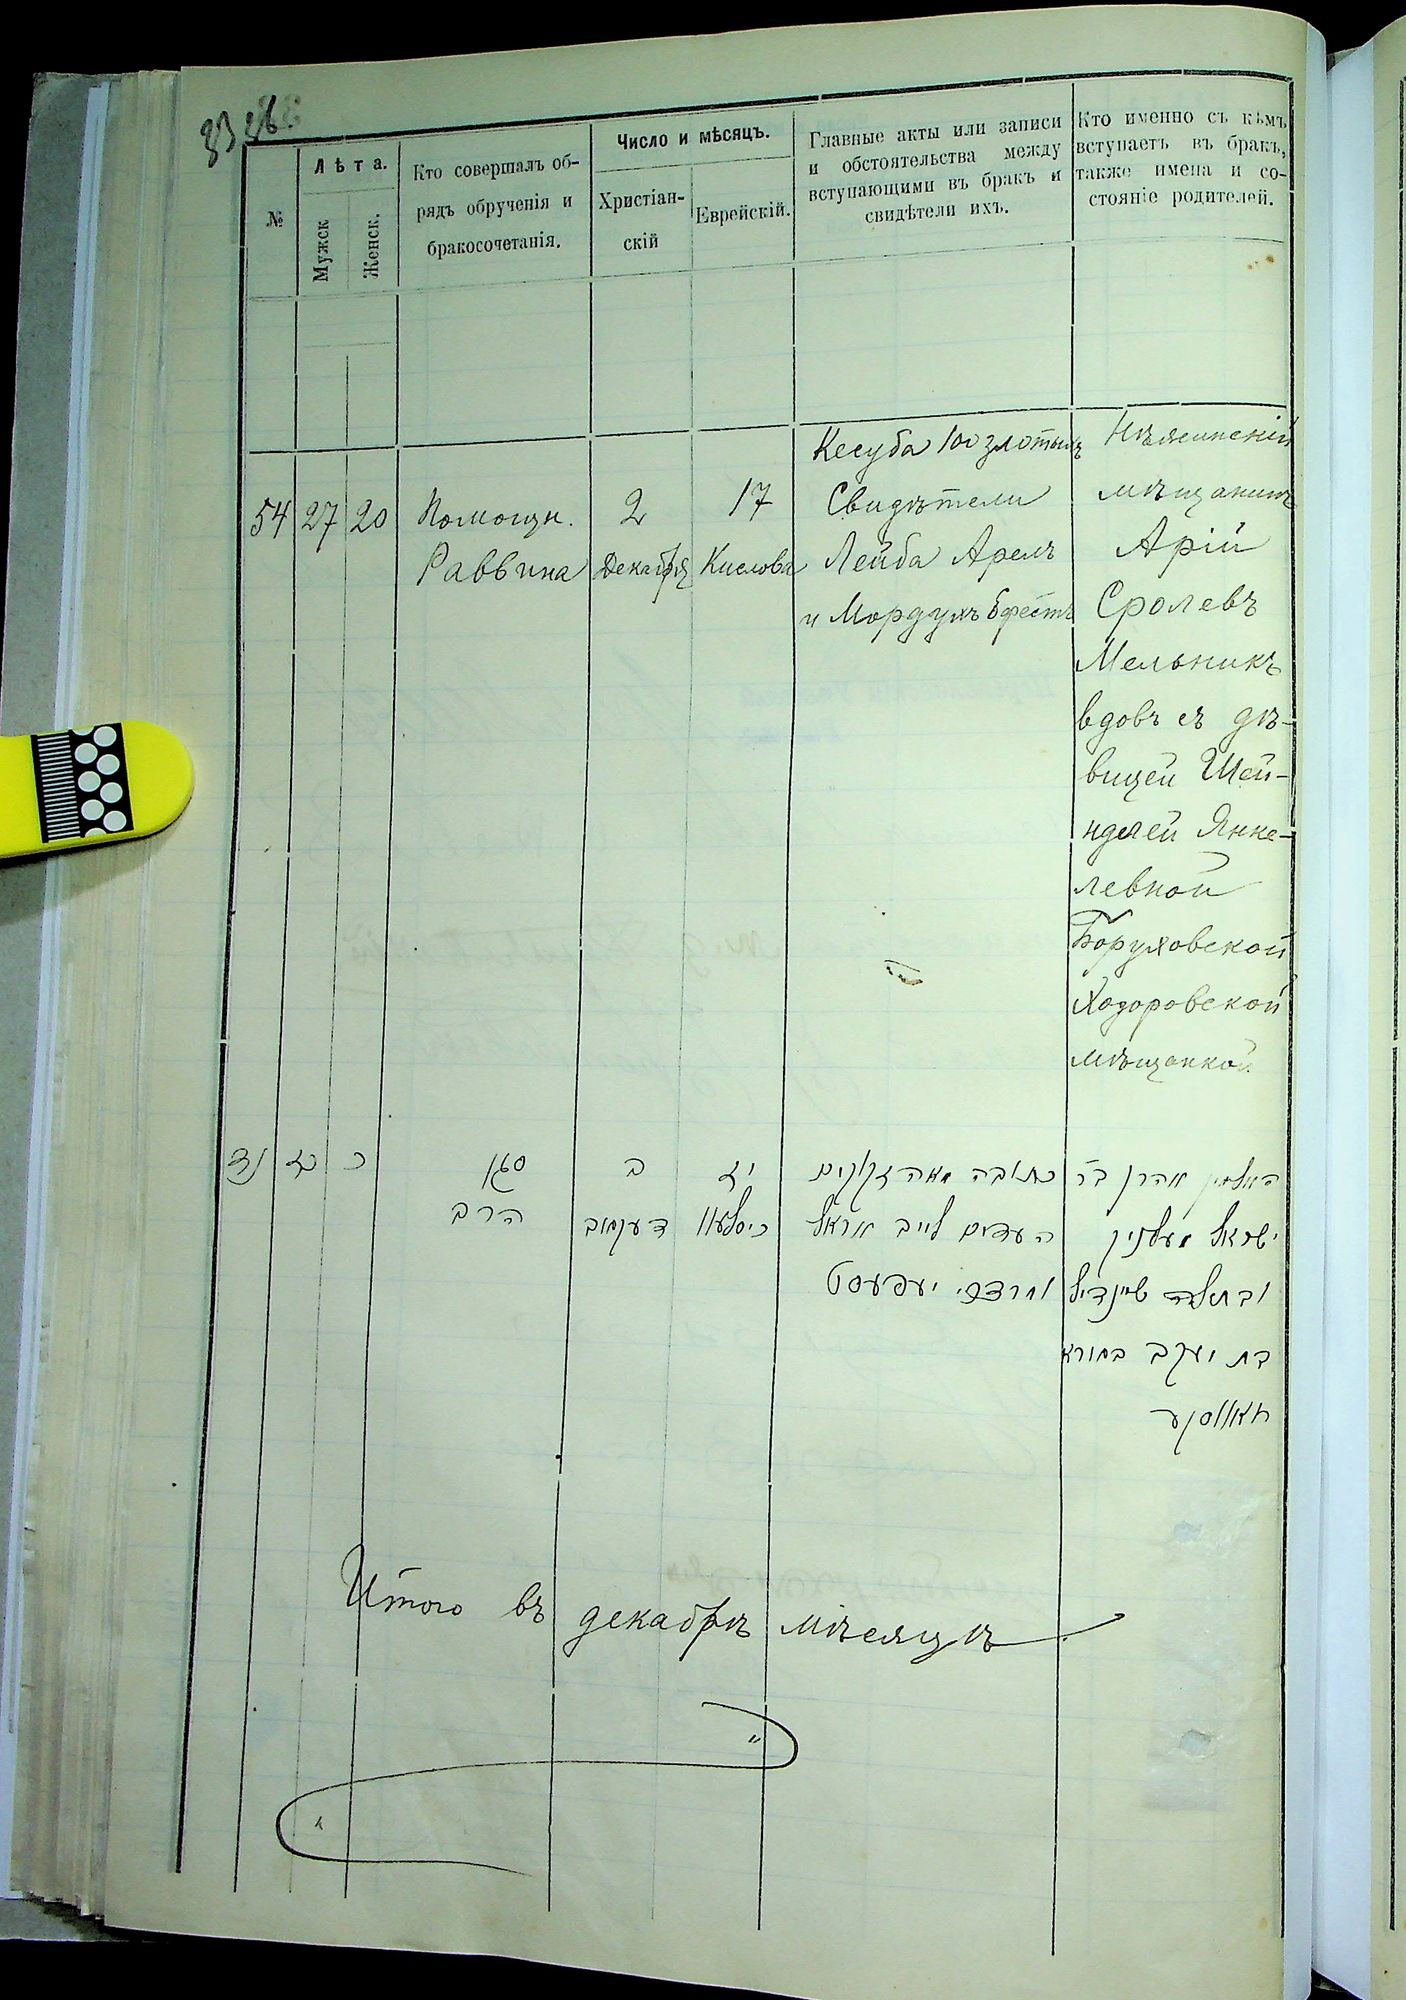 №
Лѣта.
Мужск
Женск.
Кто совершалъ об-
рядъ обрученія и
бракосочетанія.
Число и мѣсяцъ.
Христіан-
скій
Еврейскій.
Главные акты или записи
и обстоятельства между
вступающими въ бракъ и
свидѣтели ихъ.
Кто именно съ кѣмъ
вступаетъ въ бракъ,
также имена и со-
стояніе родителей.
54
27
20
Помощн.
Раввина
2
Декабря
17
Кислова
Кесуба 100 злотыхъ
Свидѣтели
Лейба Арелъ
и Мордухъ
Нѣжинскій
мѣщанинъ
Арій
Сролевъ
Мельникъ
вдовъ съ дѣ-
вицей Шей-
нделей Янке-
левной
Боруховской
Ходоровской
мѣщанкой
נד
כז
כ
סגן
הרב
ב
דעקאב
יז
כיסלעוו
כתובה מאה זקוקים
העדים לייב אראל
האלמן אהרן בר
ישראל מעלניק
ובתולה שיינדיל
בת יעקב
Итого въ декабрѣ мѣсяцѣ